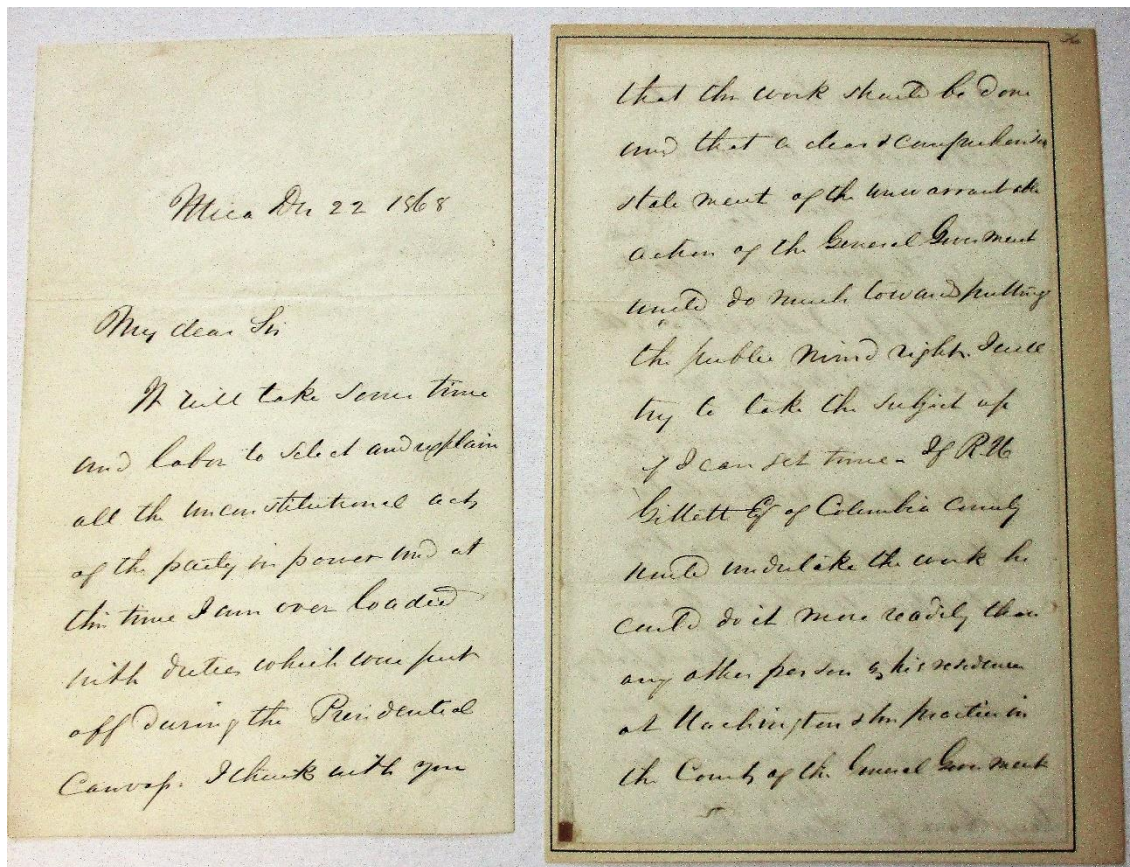 Utica Dec 22 1868
My dear Sir
It will take some time
and labor to select and explain
all the unconstitutional acts
of the party in power and at
this time I am over loaded
with duties which were put
off during the Presidential
Canvass. I think with you
that this work should be done
and that a clear & comprehensive
statement of the unwarrantable
action of the General Government
would do much toward putting
the public mind right. I will
try to take the subject up
if I can get time - If R. H.
Gillett Esq of Columbia County
would undertake the work he
could do it more readily than
any other person by his residence
at Washington & his practice in
the Courts of the General Government